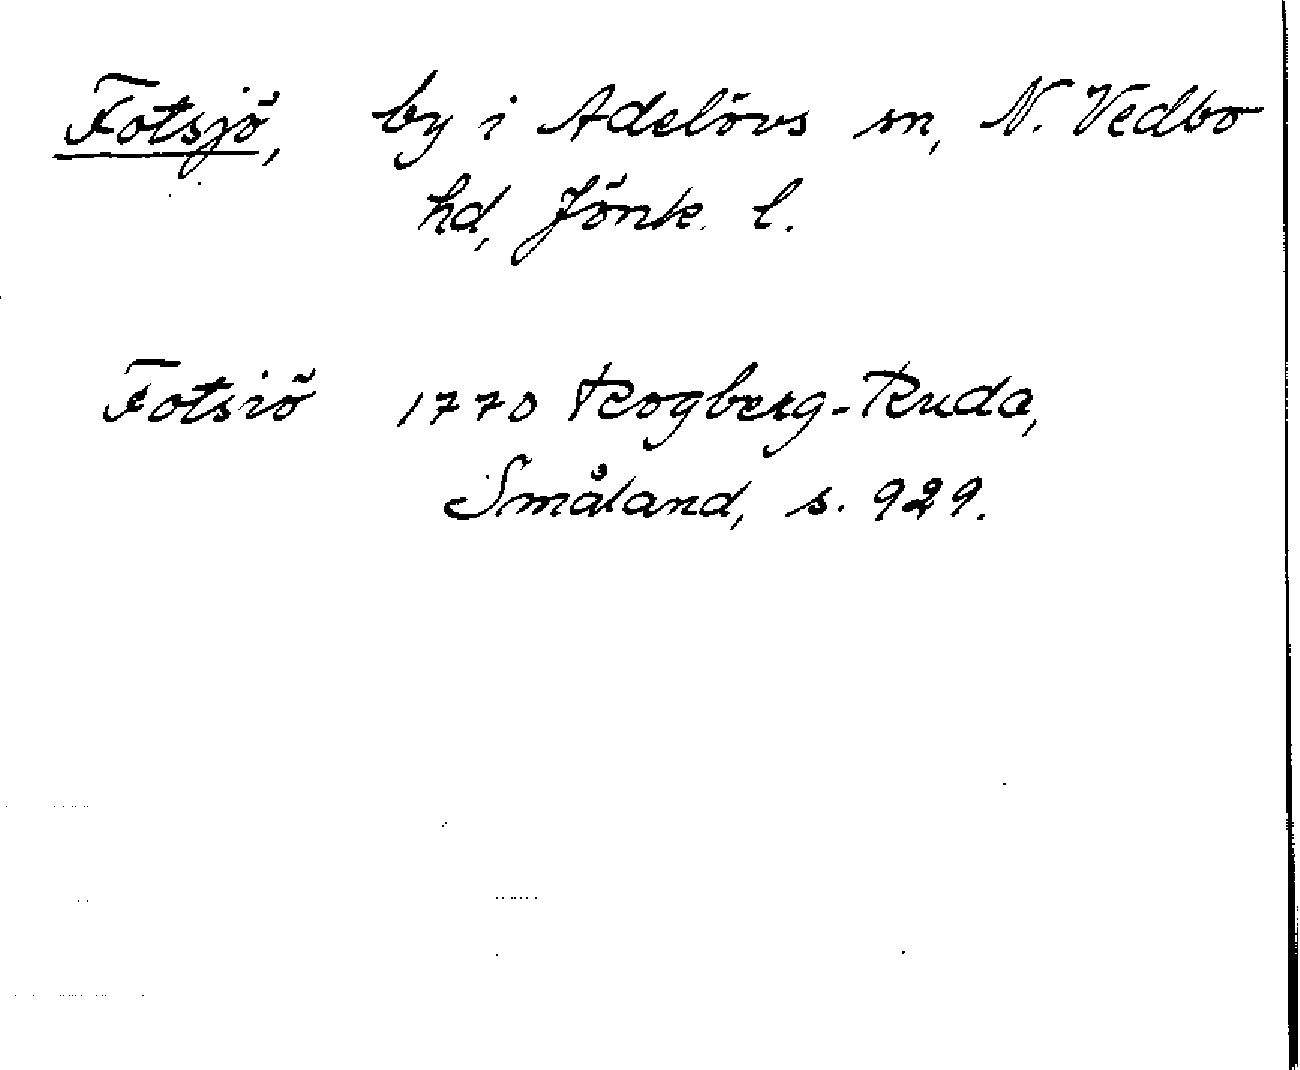 Fotsjö, by i Adelövs sn, N. Vedbo
hd, Jönk. l.
Fotsiö 1770 Rogberg-Ruda,
Småland, s. 929.